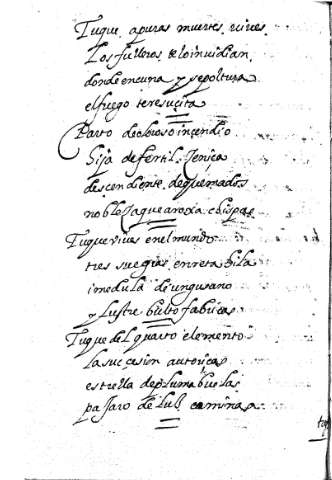 Tu que, apuras muertes, vives
Los fulleros te lo invidian,
donde en cuna y sepoltura
el fuego te resuçita
Parto de oloroso inçendio
hija de fertil Çeniça
desçendiente de quemados
noble Ça que aroxa chispas
Tu que vives en el mundo
tres suegras en reta hila
i medula de un gusano
y lustre bulto fabricas
Tu que del quarto elemento
la suçesion autoriças
estrella de pluma buelas
paJaro de luz caminas